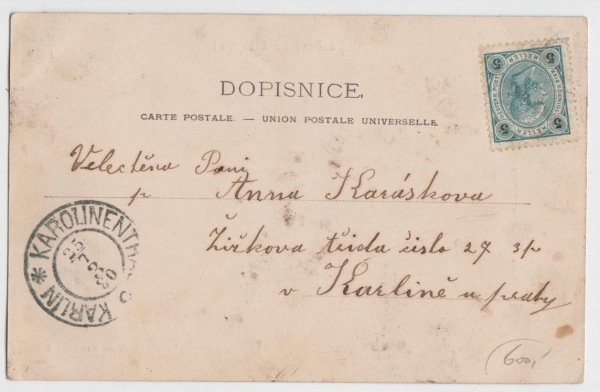 DOPISNICE.
CARTE POSTALE. — UNION POSTALE UNIVERSELLE.
5 5
HELLER HELLER
5 5
Velectěna Paní
p Anna Karáskova
Žižkova třida čislo 27 3p
v Karlině u prahy
KAROLINENTHAL
* KARLÍN
600,